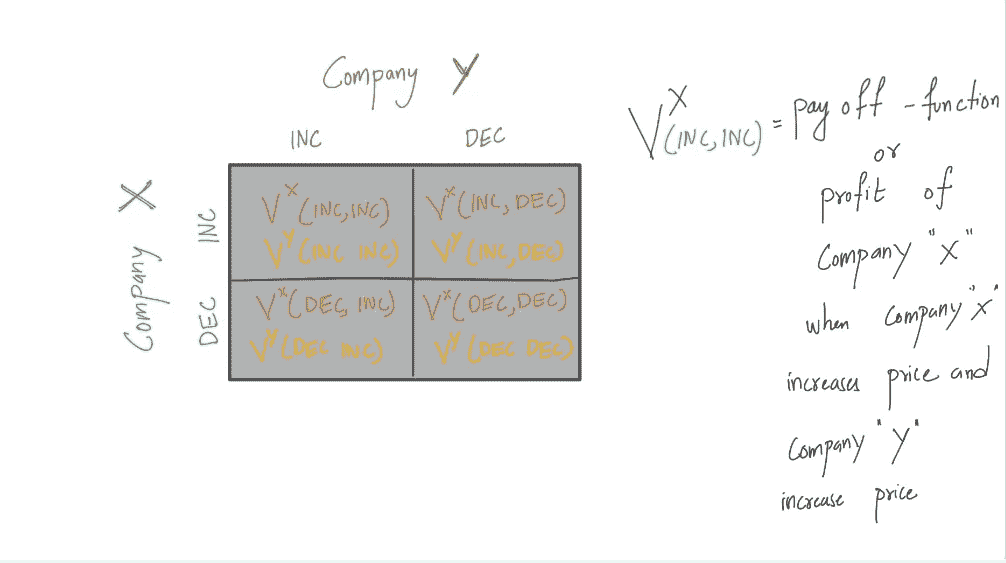 Company Y
INC DEC
Company X
INC
DEC
V^X (INC, INC) V^X (INC, DEC)
V^Y (INC INC) V^Y (INC, DEC)
V^X (DEC, INC) V^X (DEC, DEC)
V^Y (DEC INC) V^Y (DEC DEC)
V^X (INC, INC) = pay off - function
or
profit of
Company "X"
when Company "X"
increases price and
Company "Y"
increase price